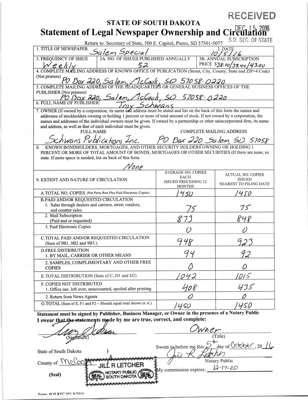 RECEIVED
DEC 15 2016
S.D. SEC. OF STATE
STATE OF SOUTH DAKOTA
Statement of Legal Newspaper Ownership and Circulation
Return to: Secretary of State, 500 E. Capitol, Pierre, SD 57501-5077
1. TITLE OF NEWSPAPER
Salem Special
2. DATE
10/5/16
3. FREQUENCY OF ISSUE
Weekly
3A. NO. OF ISSUES PUBLISHED ANNUALLY
52
3B. ANNUAL SUBSCRIPTION
PRICE
4. COMPLETE MAILING ADDRESS OF KNOWN OFFICE OF PUBLICATION (Street, City, County, State and ZIP+4 Code)
(Not printers)
PO Box 220, Salem, McCook, SD 57058-0220
5. COMPLETE MAILING ADDRESS OF THE HEADQUARTERS OR GENERAL BUSINESS OFFICES OF THE
PUBLISHER (Not printers)
PO Box 220, Salem, McCook, SD 57058-0220
6. FULL NAME OF PUBLISHER:
Troy Schwans
7. OWNER (If owned by a corporation, its name and address must be stated and list on the back of this form the names and
addresses of stockholders owning or holding 1 percent or more of total amount of stock. If not owned by a corporation, the
names and addresses of the individual owners must be given. If owned by a partnership or other unincorporated firm, its name
and address, as well as that of each individual must be given.
FULL NAME
COMPLETE MAILING ADDRESS
Schwans Publication Inc.
PO Box 220 Salem SD 57058
8. KNOWN BONDHOLDERS, MORTGAGES, AND OTHER SECURITY HOLDERS OWNING OR HOLDING 1
PERCENT OR MORE OF TOTAL AMOUNT OF BONDS, MORTGAGES OR OTHER SECURITIES (If there are none, so
state. If more space is needed, list on back of this form.
None
9. EXTENT AND NATURE OF CIRCULATION
AVERAGE NO. COPIES
EACH
ISSUED PRECEDING 12
MONTHS
ACTUAL NO. COPIES
ISSUED
NEAREST TO FILING DATE
A. TOTAL NO. COPIES
1450
1450
B. PAID AND/OR REQUESTED CIRCULATION
1. Sales through dealers and carriers, street vendors,
and counter sales
75
75
2. Mail Subscription
(Paid and or requested)
873
848
3. Paid Electronic Copies
0
0
C. TOTAL PAID AND/OR REQUESTED CIRCULATION
(Sum of 9B1, 9B2 and 9B3.)
948
923
D. FREE DISTRIBUTION
1. BY MAIL, CARRIER OR OTHER MEANS
94
92
2. SAMPLES, COMPLIMENTARY AND OTHER FREE
COPIES
0
0
E. TOTAL DISTRIBUTION (Sum of C, D1 and D2)
1042
1015
F. COPIES NOT DISTRIBUTED
1. Office use, left over, unaccounted, spoiled after printing
408
435
2. Return from News Agents
0
0
G. TOTAL (Sum of E, F1 and F2 - Should equal total shown in A.)
1450
1450
Statement must be signed by Publisher, Business Manager, or Owner in the presence of a Notary Public
I swear that the statements made by me are true, correct, and complete:
Owner
(Signature)
(Title)
State of South Dakota
Sworn to before me this 5th day of October, 2016
County of McCook
Notary Public
(Seal)
JILL R LETCHER
NOTARY PUBLIC
SOUTH DAKOTA
My commission expires: 12-17-20